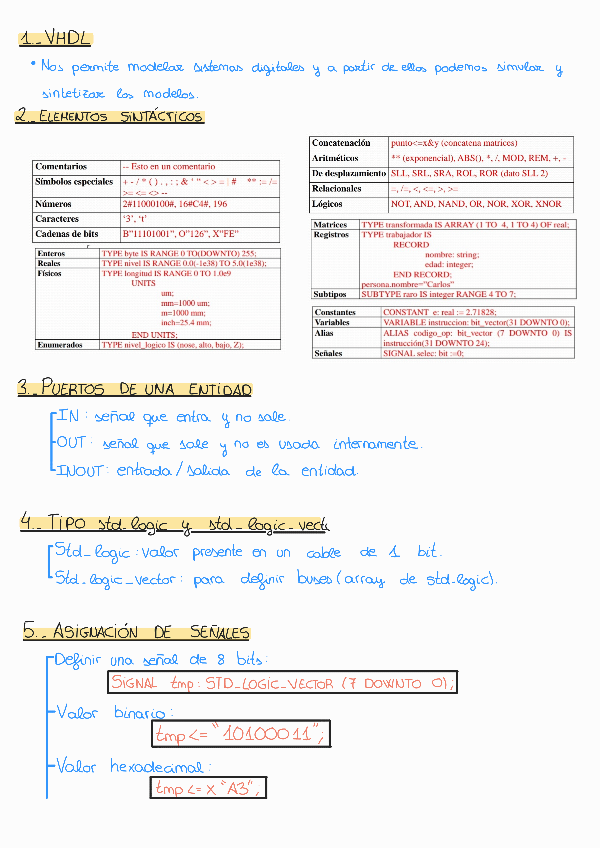 1._ VHDL
• Nos permite modelar sistemas digitales y a partir de ellos podemos simular y
sintetizar los modelos.
2._ ELEMENTOS SINTÁCTICOS
Comentarios -- Esto en un comentario
Símbolos especiales + - / * ( ) . , : ; & ' " < > = | # ** := /=
>= <= <> --
Números 2#11000100#, 16#C4#, 196
Caracteres ‘3’, ‘t’
Cadenas de bits B"11101001", O"126", X"FE"
Enteros TYPE byte IS RANGE 0 TO(DOWNTO) 255;
Reales TYPE nivel IS RANGE 0.0(-1e38) TO 5.0(1e38);
Físicos TYPE longitud IS RANGE 0 TO 1.0e9
UNITS
um;
mm=1000 um;
m=1000 mm;
inch=25.4 mm;
END UNITS;
Enumerados TYPE nivel_logico IS (nose, alto, bajo, Z);
Concatenación punto<=x&y (concatena matrices)
Aritméticos ** (exponencial), ABS(), *, /, MOD, REM, +, -
De desplazamiento SLL, SRL, SRA, ROL, ROR (dato SLL 2)
Relacionales =, /=, <, <=, >, >=
Lógicos NOT, AND, NAND, OR, NOR, XOR, XNOR
Matrices TYPE transformada IS ARRAY (1 TO 4, 1 TO 4) OF real;
Registros TYPE trabajador IS
RECORD
nombre: string;
edad: integer;
END RECORD;
persona.nombre="Carlos"
Subtipos SUBTYPE raro IS integer RANGE 4 TO 7;
Constantes CONSTANT e: real := 2.71828;
Variables VARIABLE instruccion: bit_vector(31 DOWNTO 0);
Alias ALIAS codigo_op: bit_vector (7 DOWNTO 0) IS
instrucción(31 DOWNTO 24);
Señales SIGNAL selec: bit :=0;
3._ PUERTOS DE UNA ENTIDAD
IN: señal que entra y no sale.
OUT: señal que sale y no es usada internamente.
INOUT: entrada/salida de la entidad.
4._ TIPO std_logic y std_logic_vect
Std_logic: valor presente en un cable de 1 bit.
Std_logic_vector: para definir buses (array de std_logic).
5._ ASIGNACIÓN DE SEÑALES
Definir una señal de 8 bits:
SIGNAL tmp: STD_LOGIC_VECTOR (7 DOWNTO 0);
Valor binario:
tmp <= "10100011";
Valor hexadecimal:
tmp <= X "A3",